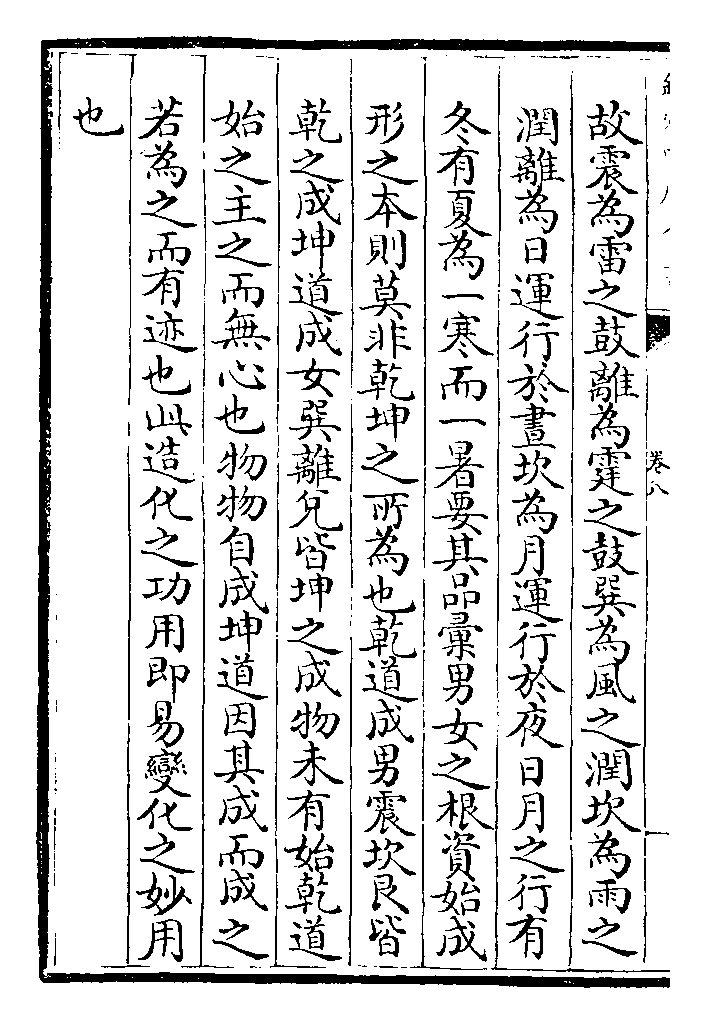 卷八
故震為雷之鼓離為霆之鼓巽為風之潤坎為雨之
潤離為日運行於晝坎為月運行於夜日月之行有
冬有夏為一寒而一暑要其品彙男女之根資始成
形之本則莫非乾坤之所為也乾道成男震坎艮皆
乾之成坤道成女巽離兌皆坤之成物未有始乾道
始之主之而無心也物物自成坤道因其成而成之
若為之而有迹也此造化之功用即易變化之妙用
也